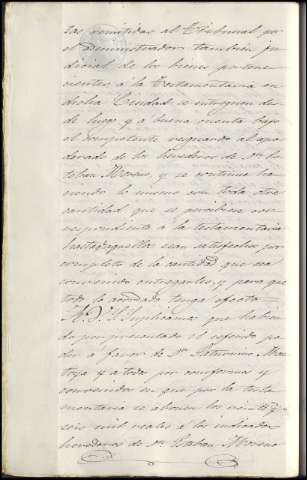 tas remitidas al Tribunal por
el administrador tambien ju-
dicial de los bienes pertene-
cientes á la Testamentaria en
dicha Ciudad se entreguen des-
de luego y á buena cuenta bajo
el competente resguardo al apo-
derado de los herederos de Dn. Es-
teban Moreno, y se continue ha-
ciendo lo mismo con toda otra
cantidad que se recibiese cor-
respondiente á la testamentaria
hasta que aquellos sean satisfechos por
completo de la cantidad que se ha
convenido entregarles, y para que
todo lo acordado tenga efecto
A V. S. Suplicamos que habien-
do por presentado el referido po-
der á favor de Dn. Saturnino Mon-
toya y á todos por conformes y
convenidos en que por la testa-
mentaria se abonen los veinte y
seis mil reales á los indicados
herederos de Dn. Esteban Moreno